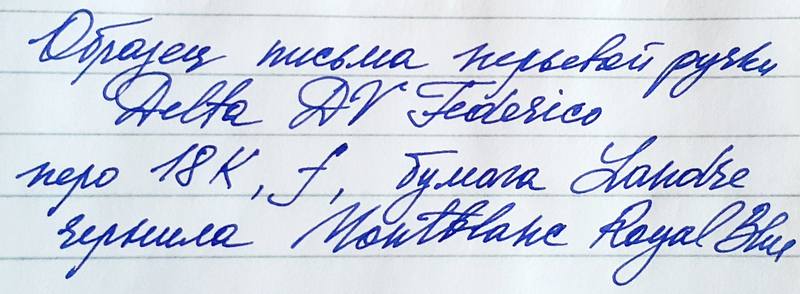 Образец письма перьевой ручки
Delta DV Federico
перо 18К, f, бумага Landre
чернила Montblanc Royal Blue